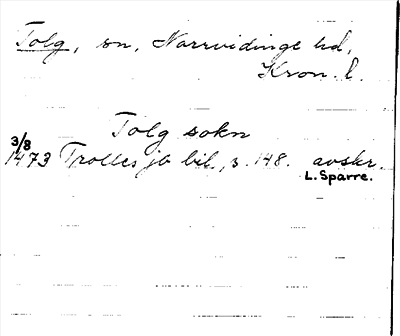 Tolg, sn, Norrvidinge hd,
Kron. l.
Tolg sokn
3/8
1473 Trolles jb bil., s. 148. avskr.
L. Sparre.